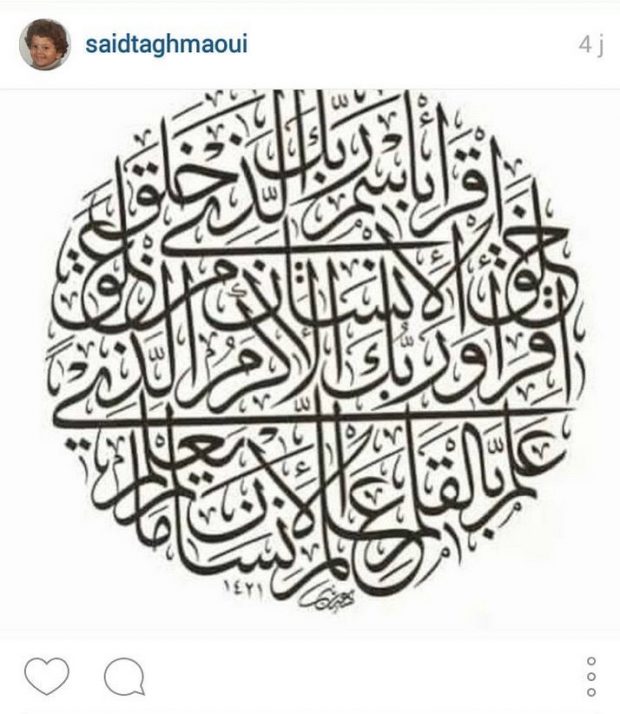 saidtaghmaoui
4 j
اقرأ باسم ربك الذي خلق
خلق الإنسان من علق
اقرأ وربك الأكرم الذي
علم بالقلم علم الإنسان ما لم يعلم
١٤٢١